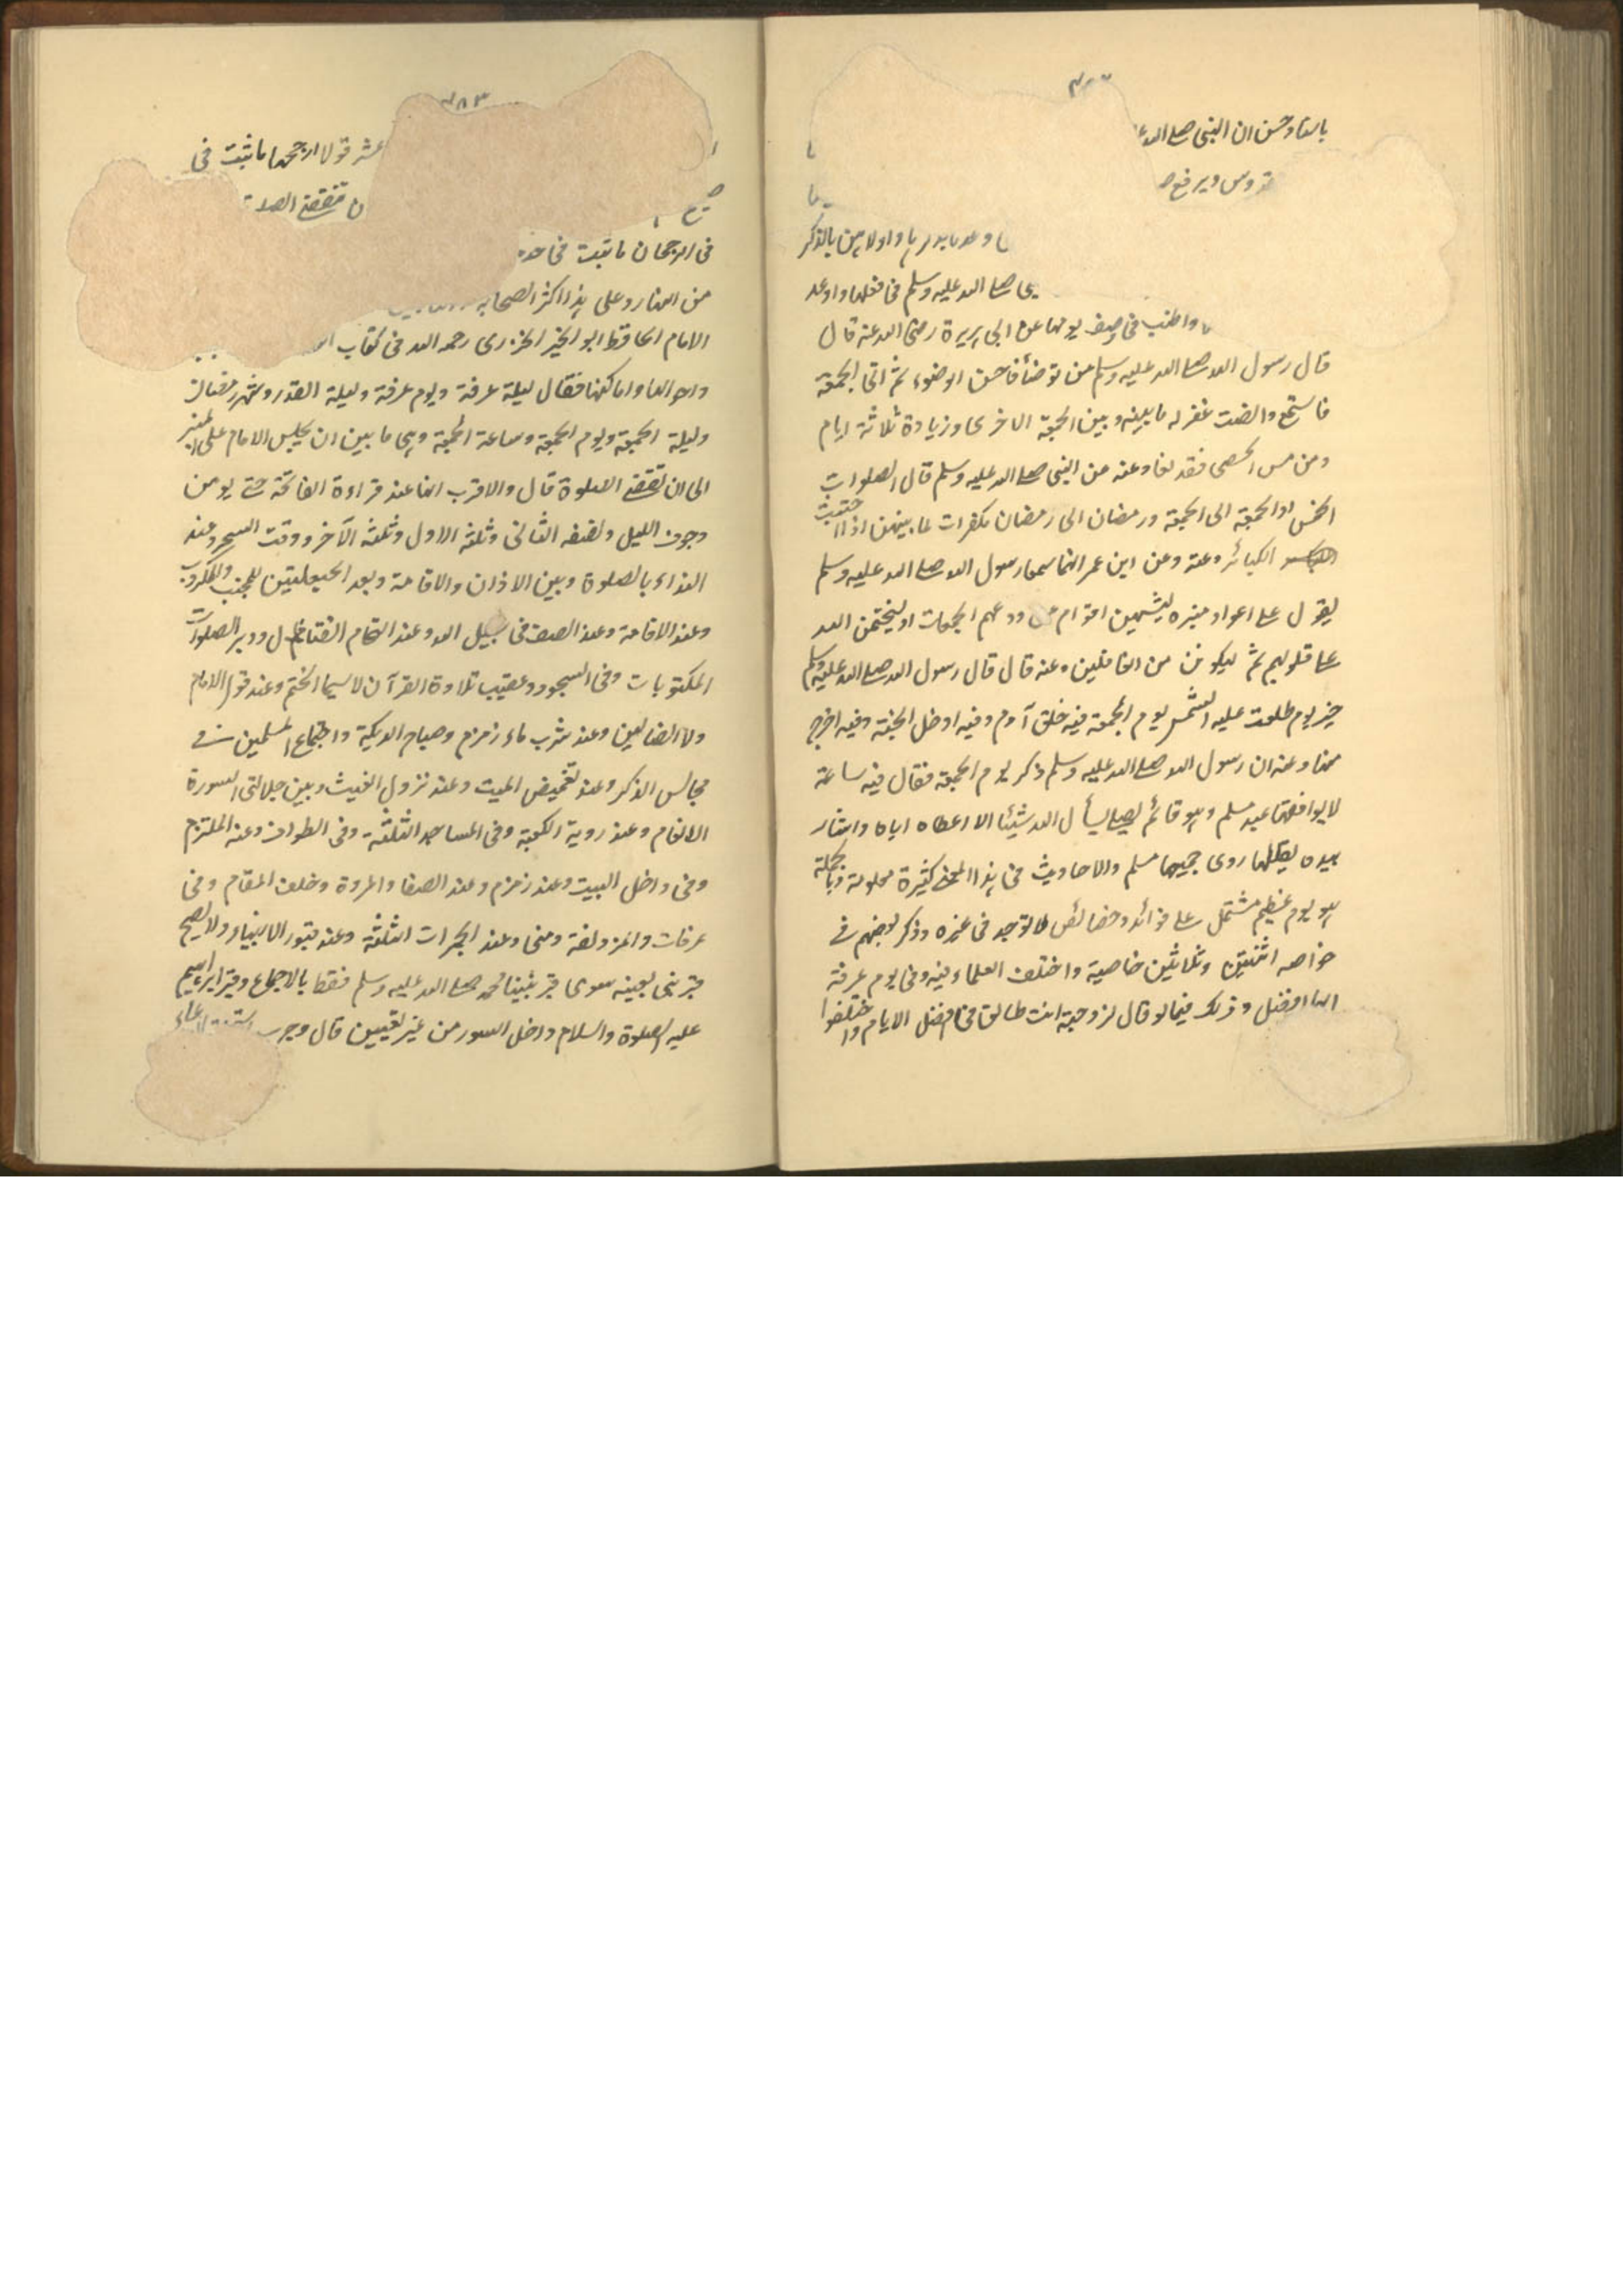 باسناد حسن ان النبي صلى الله
ويرفع
واولاهن بالذكر
صلى الله عليه وسلم في فعلها واوعد
واطنب في وصف يومها عن ابي هريرة رضى الله عنه قال
قال رسول الله صلى الله عليه وسلم من توضأ فاحسن الوضوء ثم اتى الجمعة
فاستمع وانصت غفر له ما بينه وبين الجمعة الاخرى وزيادة ثلاثة ايام
ومن مس الحصى فقد لغا وعنه عن النبي صلى الله عليه وسلم قال الصلوات
الخمس والجمعة الى الجمعة ورمضان الى رمضان مكفرات لما بينهن اذا اجتنبت
الكبائر وعنه وعن ابن عمر انهما سمعا رسول الله صلى الله عليه وسلم
يقول على اعواد منبره لينتهين اقوام عن ودعهم الجمعات او ليختمن الله
على قلوبهم ثم ليكونن من الغافلين وعنه قال قال رسول الله صلى الله عليه وسلم
خير يوم طلعت عليه الشمس يوم الجمعة فيه خلق آدم وفيه ادخل الجنة وفيه اخرج
منها وعنه ان رسول الله صلى الله عليه وسلم ذكر يوم الجمعة فقال فيه ساعة
لا يوافقها عبد مسلم وهو قائم يصلى يسأل الله شيئا الا اعطاه اياه واشار
بيده يقللها روى جميعها مسلم والاحاديث في هذا المعنى كثيرة معلومة وبالجملة
هو يوم عظيم مشتمل على فوائد وخصائص لا توجد في غيره وذكر بعضهم في
خواصه اثنتين وثلاثين خاصية واختلف العلماء فيه وفي يوم عرفة
ايهما افضل وذلك فيما لو قال لزوجته انت طالق في افضل الايام واختلفوا
٣٨٣
عشر قولا ارجحها ما ثبت في
ان تقضى الصلا
في الرجحان ما ثبت في
من النهار وعلى هذا اكثر الصحابة
الامام الحافظ ابو الخير الجزرى رحمه الله في كتاب
واحوالها واماكنها فقال ليلة عرفة ويوم عرفة وليلة القدر وشهر رمضان
وليلة الجمعة ويوم الجمعة وساعة الجمعة وهي ما بين ان يجلس الامام على المنبر
الى ان تقضى الصلوة قال والاقرب انها عند قراءة الفاتحة حتى يومن
وجوف الليل ونصفه الثاني وثلثه الاول وثلثه الآخر ووقت السحر وعند
النداء بالصلوة وبين الاذان والاقامة وبعد الحيعلتين للمجنب والمكروب
وعند الاقامة وعند الصف في سبيل الله وعند التحام القتال ودبر الصلوات
المكتوبات وفي السجود وعقيب تلاوة القرآن لا سيما الختم وعند قول الامام
ولا الضالين وعند شرب ماء زمزم وصياح الديكة واجتماع المسلمين في
مجالس الذكر وعند تغميض الميت وعند نزول الغيث وبين جلالتى السورة
الانعام وعند روية الكعبة وفي المساجد الثلثة وفي الطواف وعند الملتزم
وفي داخل البيت وعند زمزم وعند الصفا والمروة وخلف المقام وفي
عرفات والمزدلفة ومنى وعند الجمرات الثلثة وعند قبور الانبياء ولا يصح
قبر نبي بعينه سوى قبر نبينا محمد صلى الله عليه وسلم فقط بالاجماع وقبر ابراهيم
عليه الصلوة والسلام داخل السور من غير تعيين قال وجرب